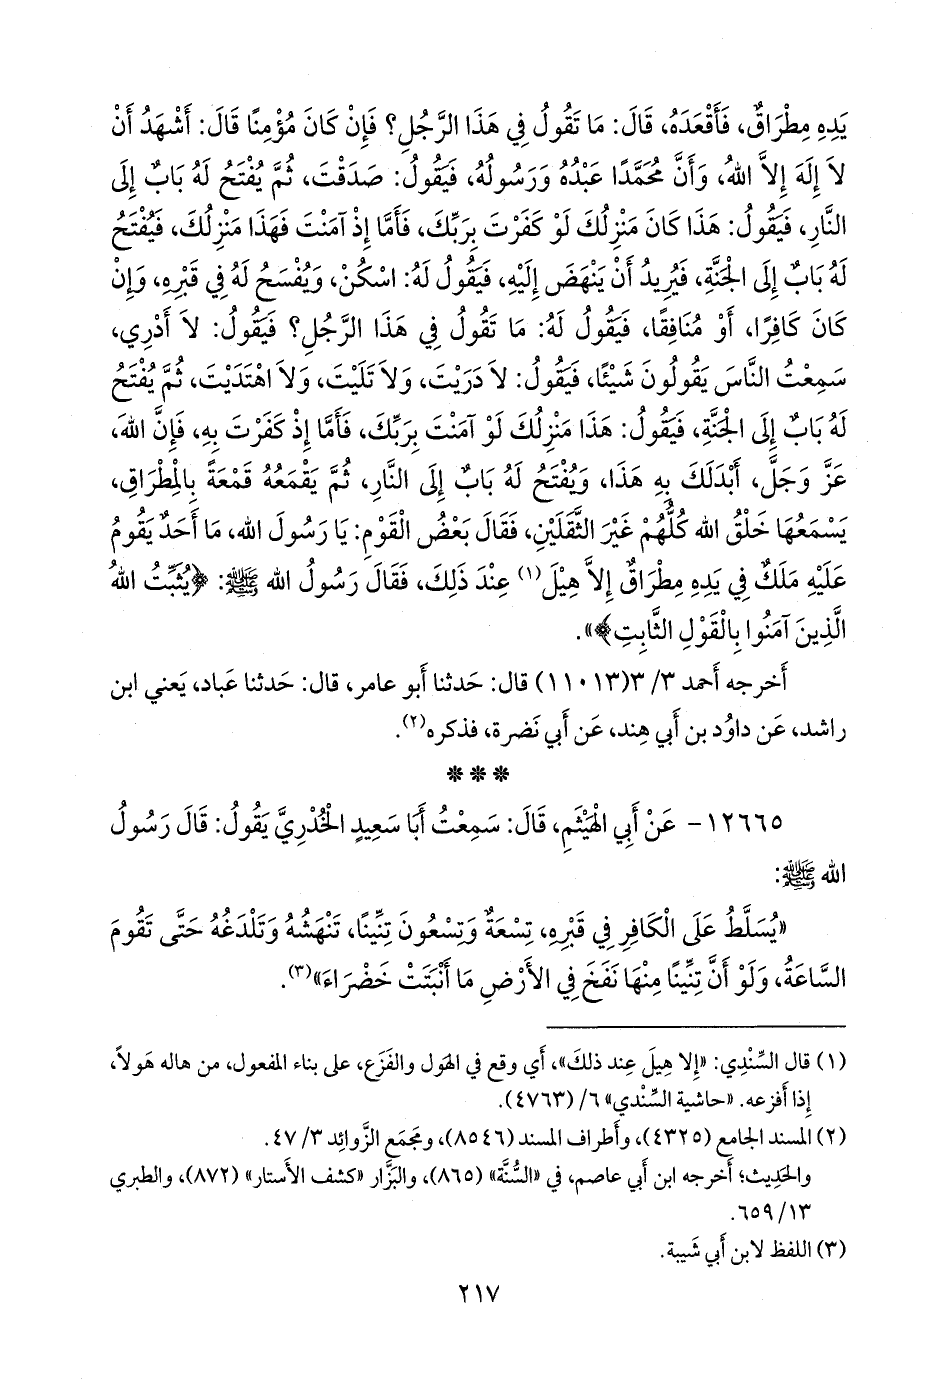 يَدِهِ مِطْرَاقٌ، فَأَقْعَدَهُ، قَالَ: مَا تَقُولُ فِي هَذَا الرَّجُلِ؟ فَإِنْ كَانَ مُؤْمِنًا قَالَ: أَشْهَدُ أَنْ
لاَ إِلَهَ إِلاَّ اللهُ، وَأَنَّ مُحَمَّدًا عَبْدُهُ وَرَسُولُهُ، فَيَقُولُ: صَدَقْتَ، ثُمَّ يُفْتَحُ لَهُ بَابٌ إِلَى
النَّارِ، فَيَقُولُ: هَذَا كَانَ مَنْزِلُكَ لَوْ كَفَرْتَ بِرَبِّكَ، فَأَمَّا إِذْ آمَنْتَ فَهَذَا مَنْزِلُكَ، فَيُفْتَحُ
لَهُ بَابٌ إِلَى الْجَنَّةِ، فَيُرِيدُ أَنْ يَنْهَضَ إِلَيْهِ، فَيَقُولُ لَهُ: اسْكُنْ، وَيُفْسَحُ لَهُ فِي قَبْرِهِ، وَإِنْ
كَانَ كَافِرًا، أَوْ مُنَافِقًا، فَيَقُولُ لَهُ: مَا تَقُولُ فِي هَذَا الرَّجُلِ؟ فَيَقُولُ: لاَ أَدْرِي،
سَمِعْتُ النَّاسَ يَقُولُونَ شَيْئًا، فَيَقُولُ: لاَ دَرَيْتَ، وَلاَ تَلَيْتَ، وَلاَ اهْتَدَيْتَ، ثُمَّ يُفْتَحُ
لَهُ بَابٌ إِلَى الْجَنَّةِ، فَيَقُولُ: هَذَا مَنْزِلُكَ لَوْ آمَنْتَ بِرَبِّكَ، فَأَمَّا إِذْ كَفَرْتَ بِهِ، فَإِنَّ اللهَ،
عَزَّ وَجَلَّ، أَبْدَلَكَ بِهِ هَذَا، وَيُفْتَحُ لَهُ بَابٌ إِلَى النَّارِ، ثُمَّ يَقْمَعُهُ قَمْعَةً بِالْمِطْرَاقِ،
يَسْمَعُهَا خَلْقُ الله كُلُّهُمْ غَيْرَ الثَّقَلَيْنِ، فَقَالَ بَعْضُ الْقَوْمِ: يَا رَسُولَ الله، مَا أَحَدٌ يَقُومُ
عَلَيْهِ مَلَكٌ فِي يَدِهِ مِطْرَاقٌ إِلاَّ هِيْلَ(١) عِنْدَ ذَلِكَ، فَقَالَ رَسُولُ الله ﷺ: ﴿يُثَبِّتُ اللهُ
الَّذِينَ آمَنُوا بِالْقَوْلِ الثَّابِتِ﴾».
أَخرجه أَحمد ٣/٣(١١٠١٣) قال: حَدثنا أَبو عامر، قال: حَدثنا عَباد، يَعني ابن
راشد، عَن داوُد بن أَبي هِند، عَن أَبي نَضرة، فذكره(٢).
***
١٢٦٦٥- عَنْ أَبِي الْهَيْثَمِ، قَالَ: سَمِعْتُ أَبَا سَعِيدٍ الْخُدْرِيَّ يَقُولُ: قَالَ رَسُولُ
الله ﷺ:
«يُسَلَّطُ عَلَى الْكَافِرِ فِي قَبْرِهِ، تِسْعَةٌ وَتِسْعُونَ تِنِّينًا، تَنْهَشُهُ وَتَلْدَغُهُ حَتَّى تَقُومَ
السَّاعَةُ، وَلَوْ أَنَّ تِنِّينًا مِنْهَا نَفَخَ فِي الأَرْضِ مَا أَنْبَتَتْ خَضْرَاءَ»(٣).
(١) قال السِّنْدِي: «إِلا هِيلَ عِند ذلكَ»، أَي وقع في الهَول والفَزَع، على بناء المفعول، من هاله هَولاً،
إِذا أَفزعه. «حاشية السِّنْدي» ٦/ (٤٧٦٣).
(٢) المسند الجامع (٤٣٢٥)، وأَطراف المسند (٨٥٤٦)، ومَجمَع الزَّوائِد ٣/ ٤٧.
والحَدِيث؛ أَخرجه ابن أَبي عاصم، في «السُّنَّة» (٨٦٥)، والبَزَّار «كشف الأَستار» (٨٧٢)، والطبري
١٣/ ٦٥٩.
(٣) اللفظ لابن أَبي شَيبة.
٢١٧